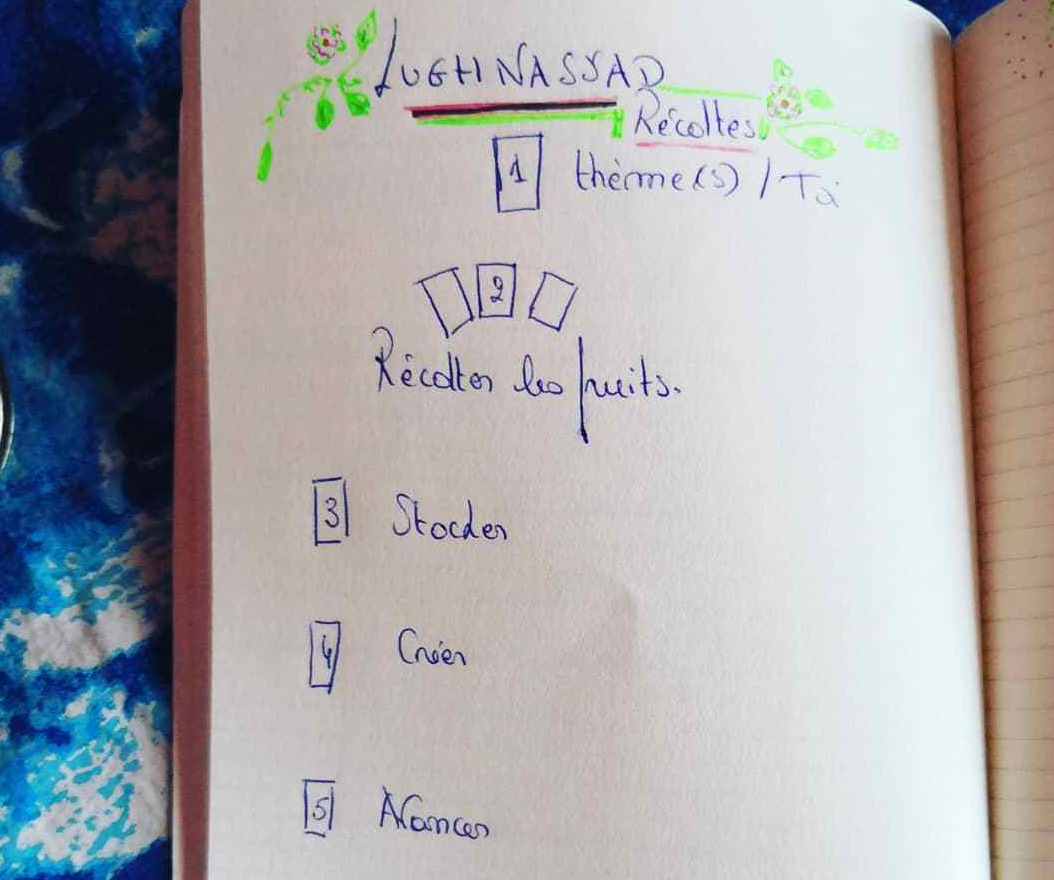 LUGHNASSAD
Récoltes
1 thème(s) / Toi
2
Récolter les fruits.
3 Stocker
4 Créer
5 Avancer